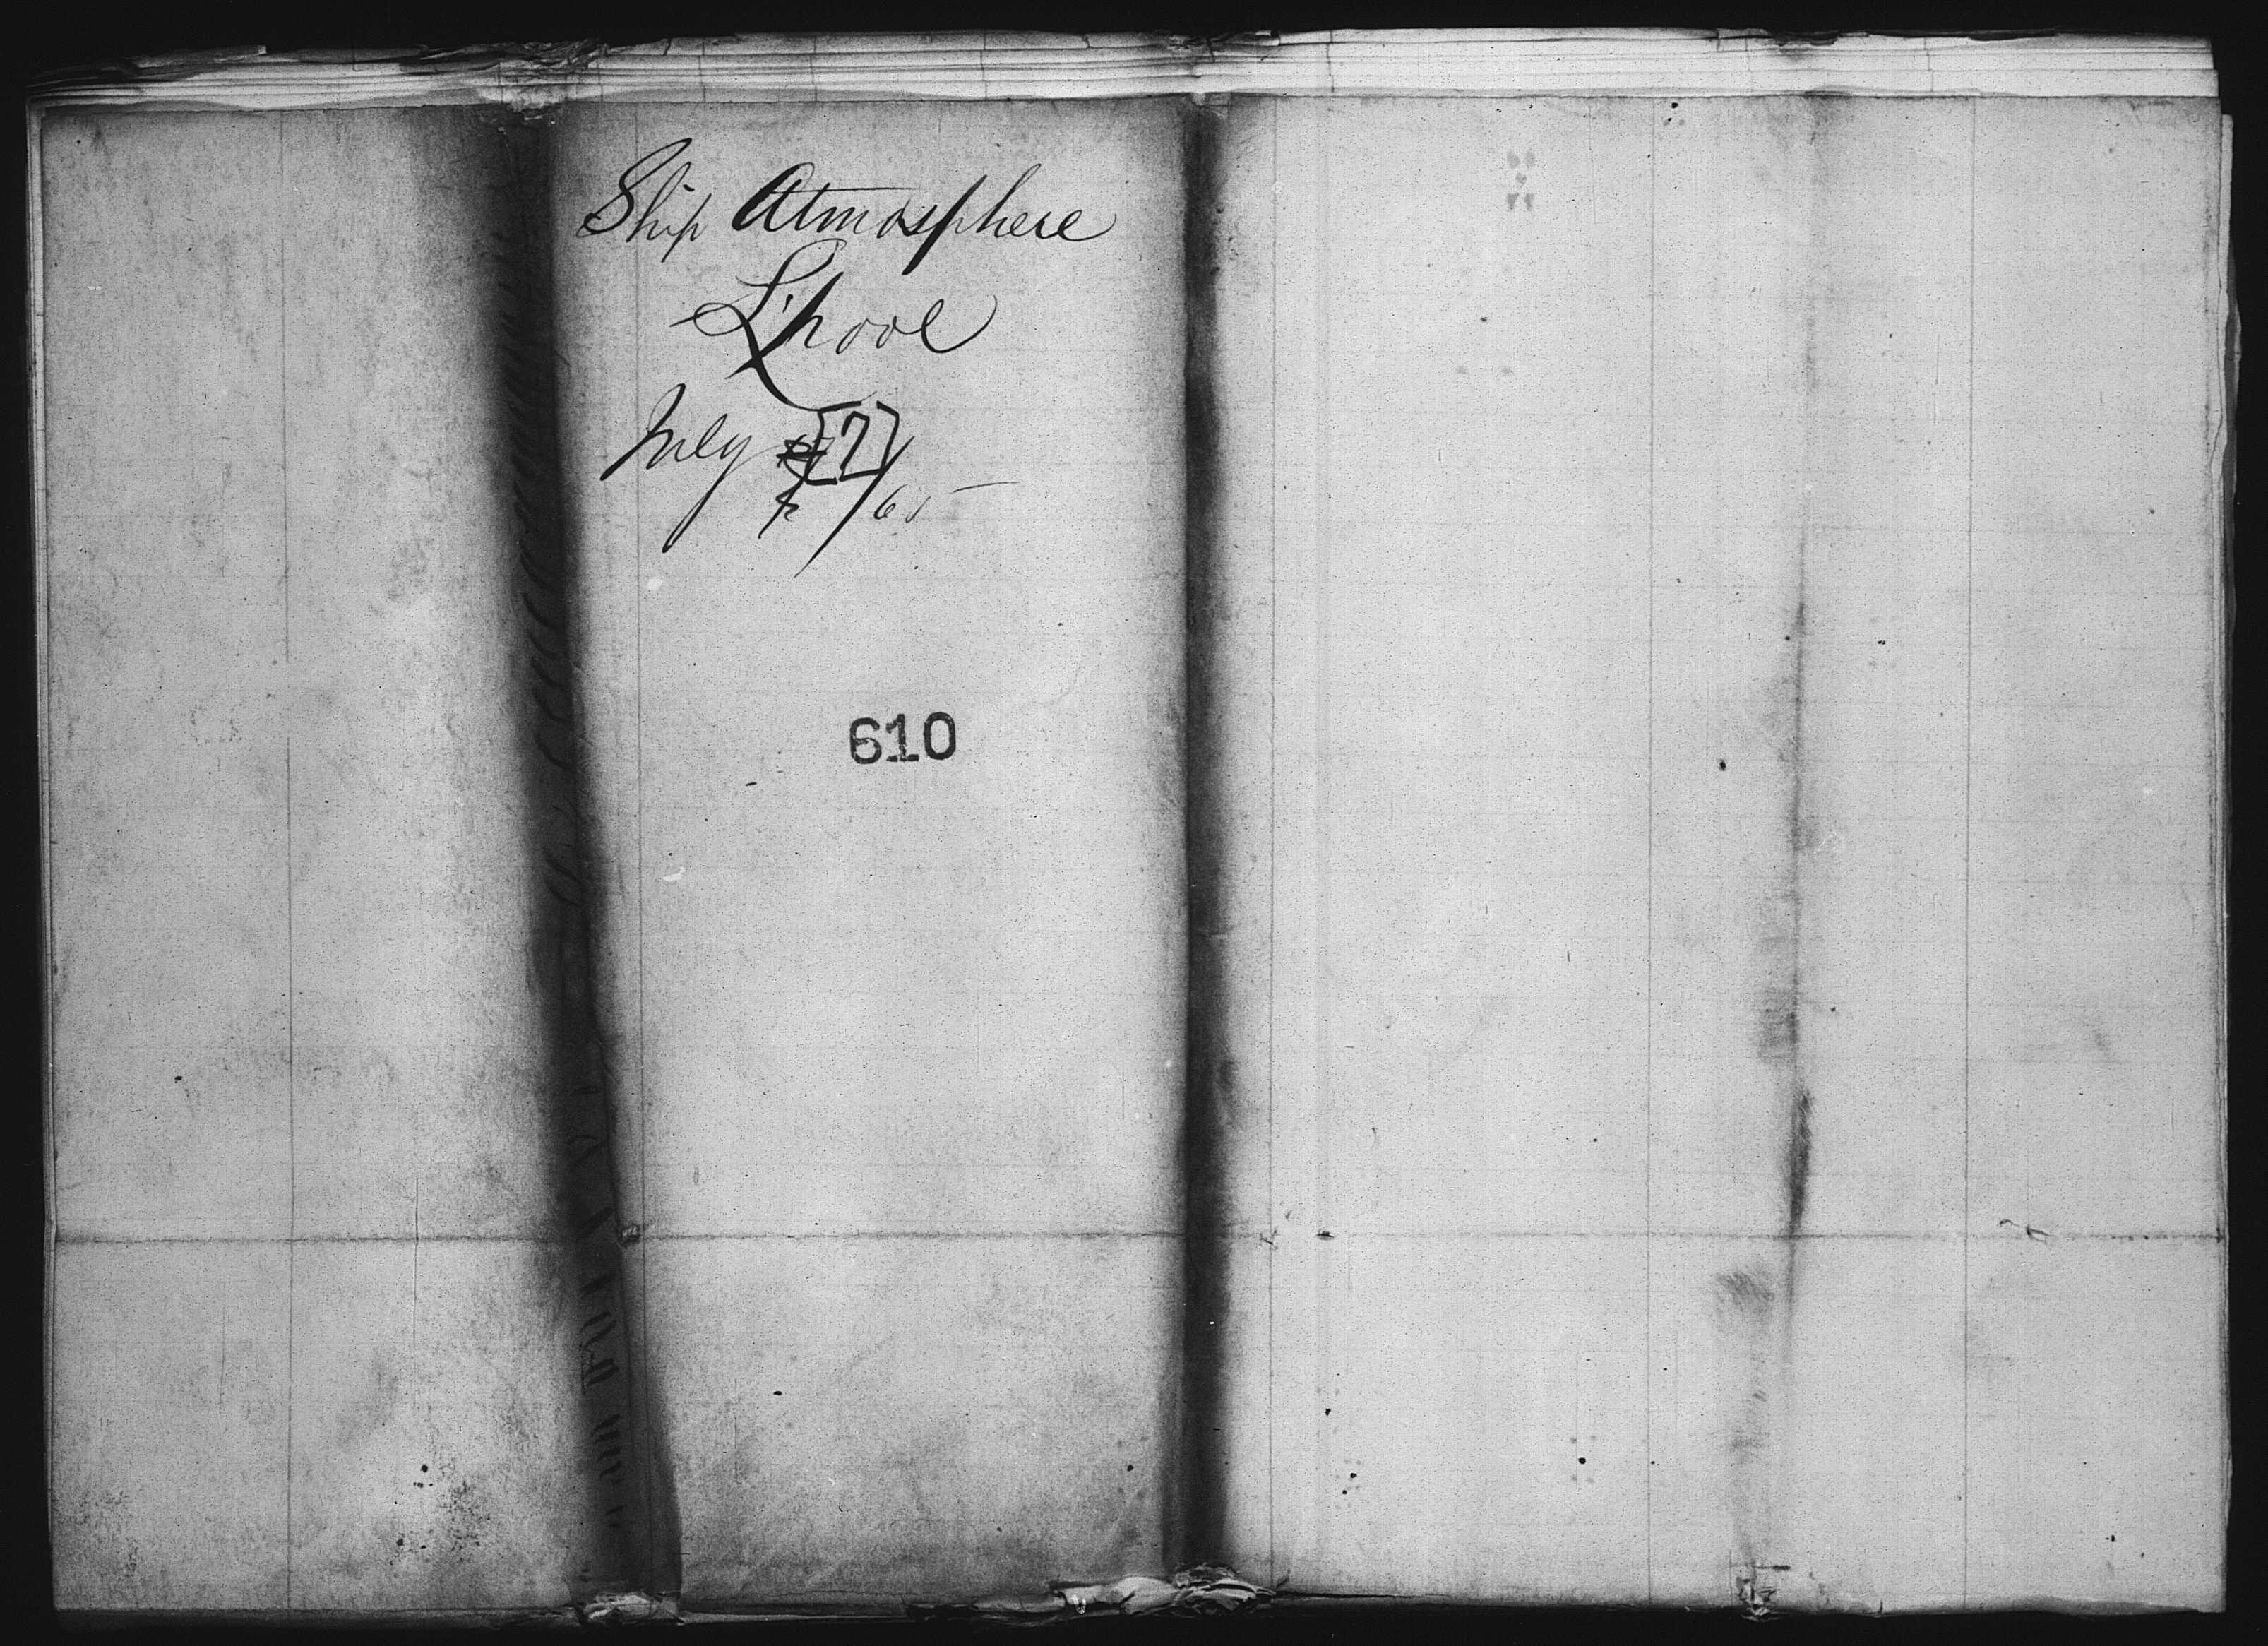 Ship Atmosphere
L'pool
July [7]/65
610